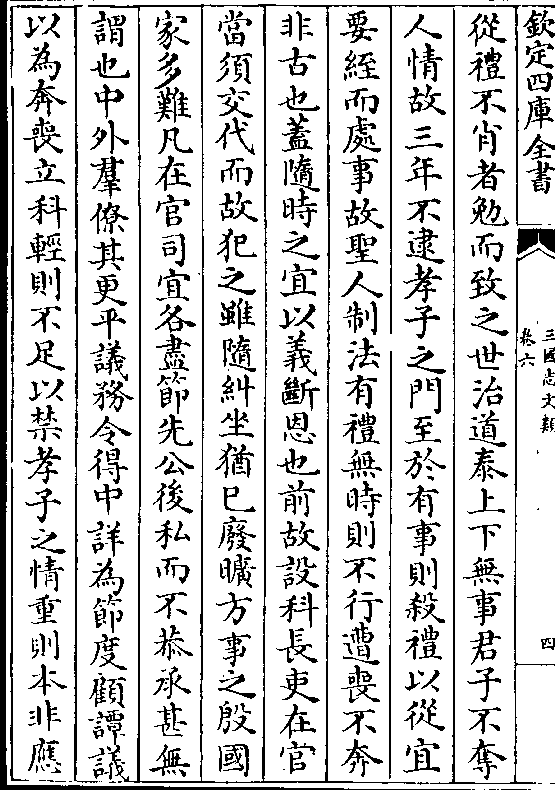 欽定四庫全書
三國志文類
卷六
四
從禮不肖者勉而致之世治道泰上下無事君子不奪
人情故三年不逮孝子之門至於有事則殺禮以從宜
要絰而處事故聖人制法有禮無時則不行遭喪不奔
非古也葢隨時之宜以義斷恩也前故設科長吏在官
當須交代而故犯之雖隨糾坐猶已廢曠方事之殷國
家多難凡在官司宜各盡節先公後私而不恭承甚無
謂也中外羣僚其更平議務令得中詳為節度顧譚議
以為奔喪立科輕則不足以禁孝子之情重則本非應